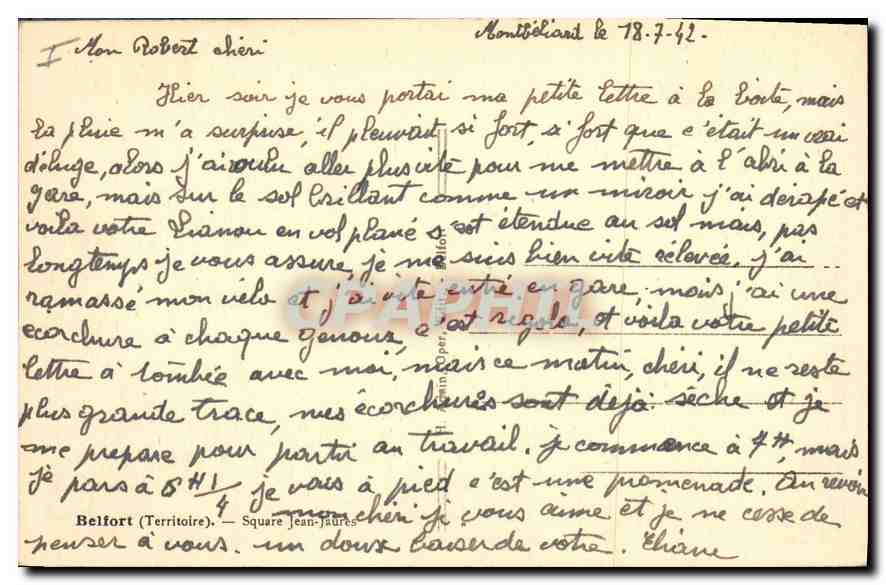 Montbéliard le 18-7-42-
I Mon Robert chéri
Hier soir je vous portai ma petite lettre à la boite, mais
la pluie m'a surprise, il pleuvait si fort, si fort que c'était un vrai
déluge, alors j'ai voulu aller plus vite pour me mettre à l'abri à la
gare, mais sur le sol brillant comme un miroir j'ai dérapé et
voila votre Lianou en vol plané s'est étendue au sol mais, pas
longtemps je vous assure, je me suis bien vite relevée, j'ai
ramassé mon vélo et j'ai vite entré en gare, mais j'ai une
écorchure à chaque genoux, c'est rigolo, et voila votre petite
lettre à tombée avec moi, mais ce matin, chéri, il ne reste
plus grande trace, mes écorchures sont déjà sèche et je
me prepare pour partir au travail. je commence à 7H, mais
je pars à 6H1/4 je vais à pied c'est une promenade. Au revoir
mon chéri je vous aime et je ne cesse de
Belfort (Territoire). — Square Jean-Jaurès
penser à vous. un doux baiser de votre. Eliane
CPAPHIL
Belfort